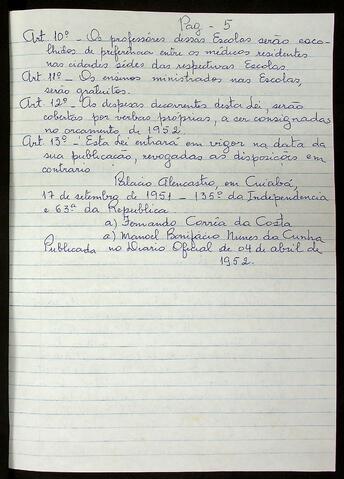 Pag - 5
Art 10º - Os professôres dessas Escolas serão esco-
lhidos de preferência entre os médicos residentes
nas cidades sédes das respectivas Escolas.
Art 11º - Os ensinos ministrados nas Escolas,
serão gratuitos.
Art. 12º - As despesas decorrentes desta lei, serão
cobertas por verbas próprias, a ser consignadas
no orçamento de 1952.
Art. 13º - Esta lei entrará em vigor na data da
sua publicação, revogadas as disposições em
contrario
Palacio Alencastro, em Cuiabá,
17 de setembro de 1951 - 135º da Independencia
e 63ª da Republica
a) Fernando Corrêa da Costa
a) Manoel Bonifácio Nunes da Cunha
Publicada no Diario Oficial de 04 de abril de
1952.